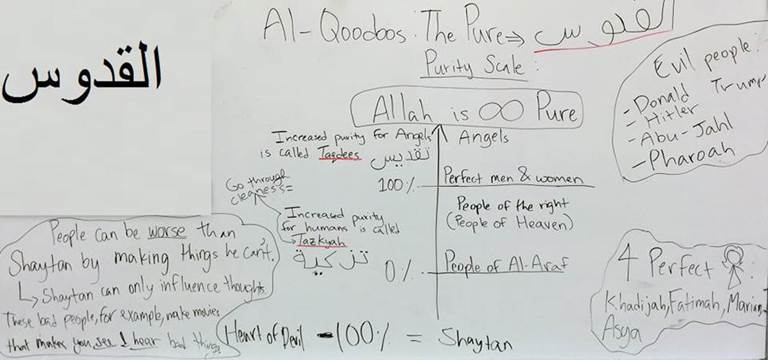 القدوس
Al-Qoodoos: The Pure⇒ القدوس
Purity Scale:
Allah is ∞ Pure
Increased purity for Angels
is called Taqdees تقديس
Angels
Go through
cleaness=
100%
Perfect men & women
Increased purity
for humans is called
→Tazkyah
تزكية
People of the right
(People of Heaven)
0%
People of Al-Araf
Heart of Devil -100% = Shaytan
People can be worse than
Shaytan by making things he can't.
↳ Shaytan can only influence thoughts
These bad people, for example, make movies
that makes you see & hear bad things
Evil people:
- Donald Trump
- Hitler
- Abu-Jahl
- Pharoah
4 Perfect
Khadijah, Fatimah, Mariam,
Asya